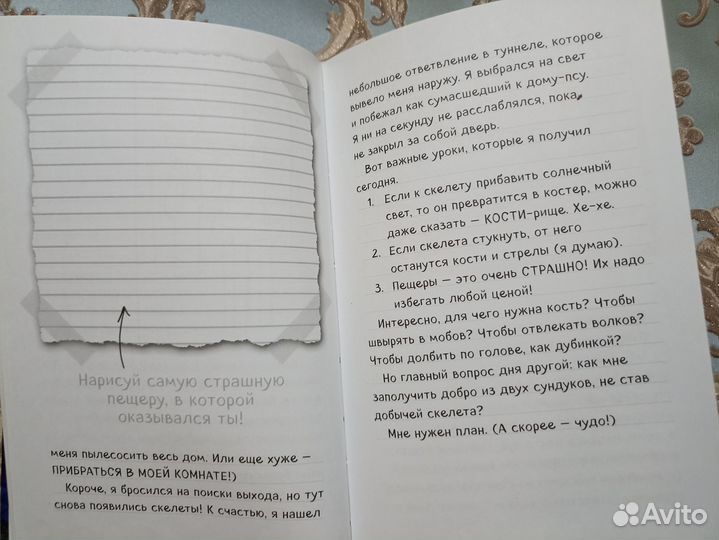 Нарисуй самую страшную
пещеру, в которой
оказывался ты!
меня пылесосить весь дом. Или еще хуже –
ПРИБРАТЬСЯ В МОЕЙ КОМНАТЕ!)
Короче, я бросился на поиски выхода, но тут
снова появились скелеты! К счастью, я нашел
небольшое ответвление в туннеле, которое
вывело меня наружу. Я выбрался на свет
и побежал как сумасшедший к дому-псу.
Я ни на секунду не расслаблялся, пока
не закрыл за собой дверь.
Вот важные уроки, которые я получил
сегодня.
1. Если к скелету прибавить солнечный
свет, то он превратится в костер, можно
даже сказать – КОСТИ-рище. Хе-хе.
2. Если скелета стукнуть, от него
останутся кости и стрелы (я думаю).
3. Пещеры – это очень СТРАШНО! Их надо
избегать любой ценой!
Интересно, для чего нужна кость? Чтобы
швырять в мобов? Чтобы отвлекать волков?
Чтобы долбить по голове, как дубинкой?
Но главный вопрос дня другой: как мне
заполучить добро из двух сундуков, не став
добычей скелета?
Мне нужен план. (А скорее – чудо!)
Avito